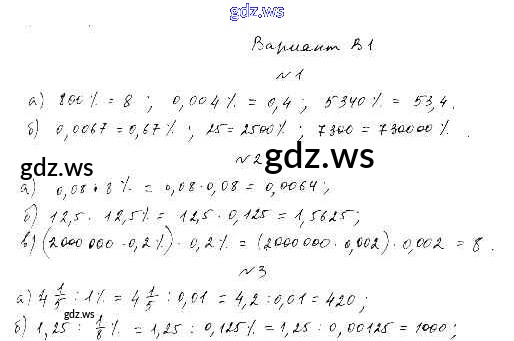 gdz.ws
Вариант В1
№1
а) 800% = 8 ; 0,004% = 0,4 ; 5340% = 53,4.
б) 0,0067 = 0,67% ; 25 = 2500% ; 7300 = 730000% .
gdz.ws
№2
gdz.ws
а) 0,08 · 8% = 0,08 · 0,08 = 0,0064;
б) 12,5 · 12,5% = 12,5 · 0,125 = 1,5625;
в) (2000 000 · 0,2%) · 0,2% = (2000 000 · 0,002) · 0,002 = 8 .
№3
а) 4 1/5 : 1% = 4 1/5 : 0,01 = 4,2 : 0,01 = 420 ;
gdz.ws
б) 1,25 : 1/8 % = 1,25 : 0,125% = 1,25 : 0,00125 = 1000;
gdz.ws